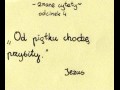 - znane cytaty -
odcinek 4
„Od piątku chodzę
przybity."
Jezus